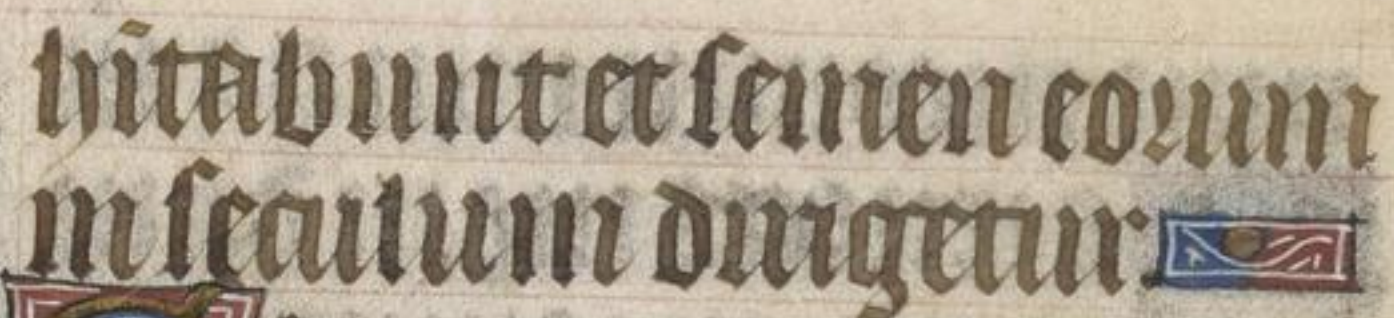 hitabunt et semen eorum
in seculum dirigetur